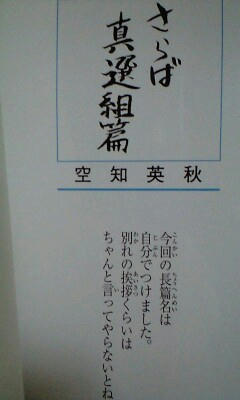 さらば
真選組篇
空知英秋
今回の長篇名は
自分でつけました。
別れの挨拶くらいは
ちゃんと言ってやらないとね